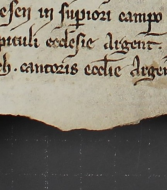 esen in sup̄iori campo
pituli ecclesie Argent.
ch. cantoris eccl̄ie Argen